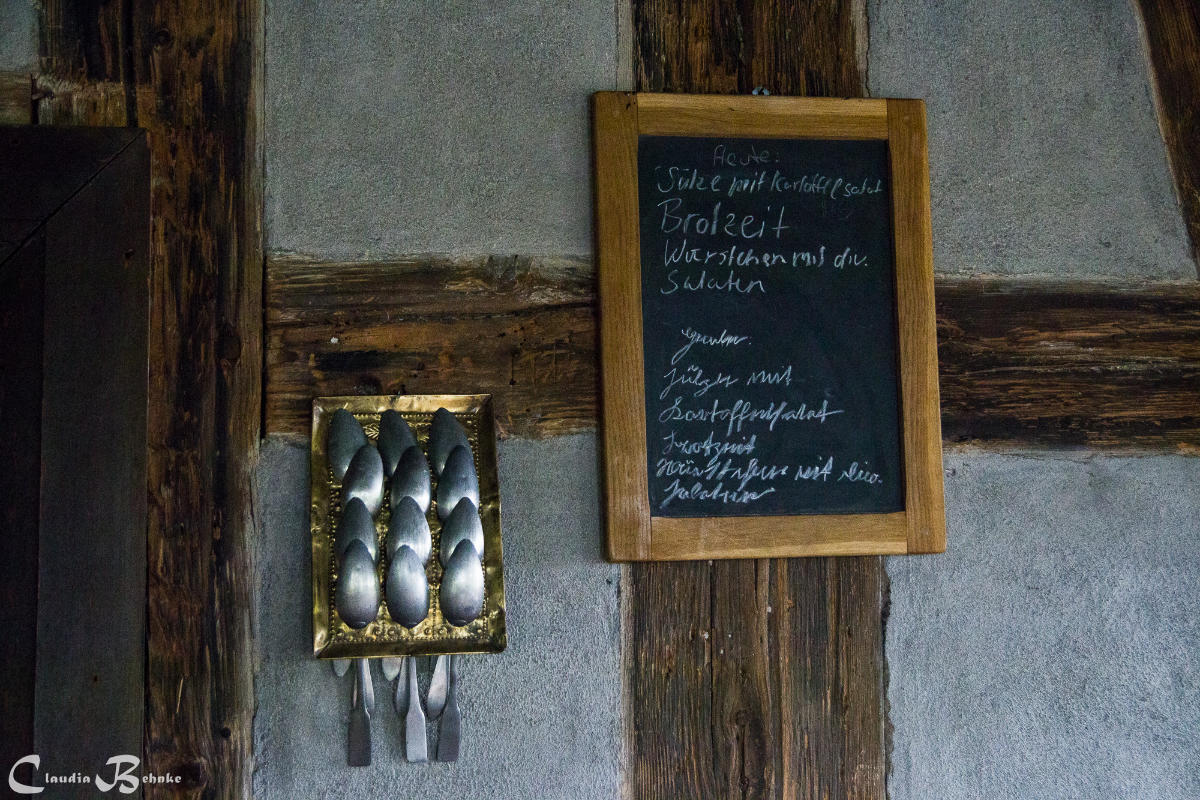 Heute:
Sülze mit Kartoffelsalat
Brotzeit
Würstchen mit div.
Salaten
Sülze mit
Kartoffelsalat
Brotzeit
Würstchen mit div.
Salaten
Claudia Behnke